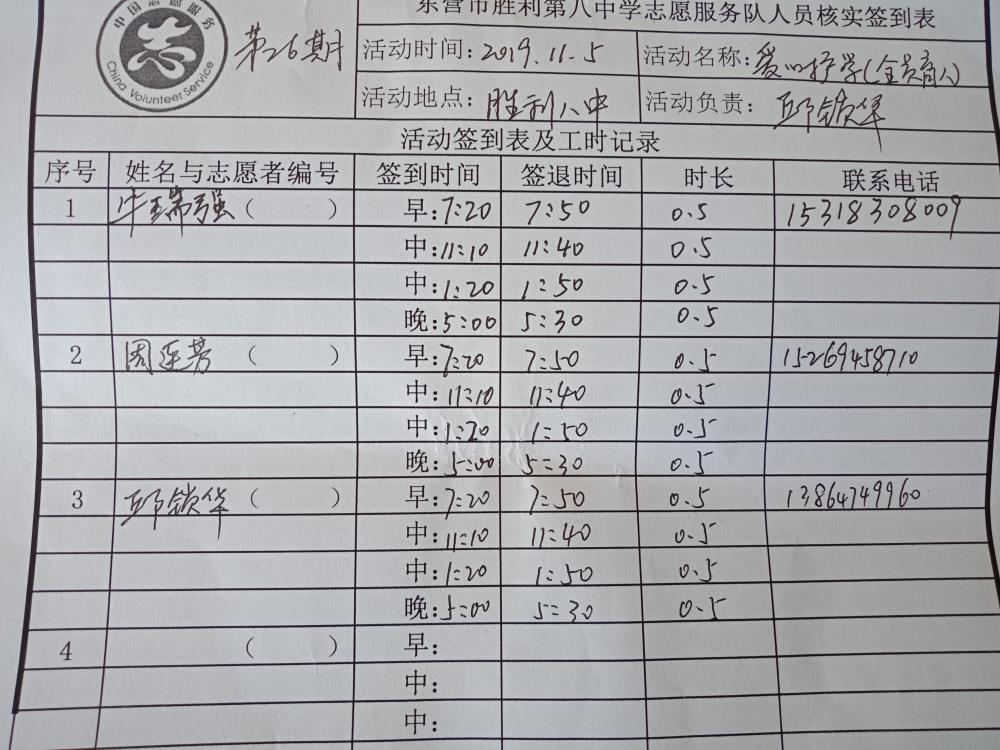 东营市胜利第八中学志愿服务队人员核实签到表
中国志愿服务
China Volunteer Service
第26期
活动时间:2019.11.5 活动名称:爱心护学(全员育人)
活动地点:胜利八中 活动负责:邱锁华
活动签到表及工时记录
序号 姓名与志愿者编号 签到时间 签退时间 时长 联系电话
1 牛瑞强( ) 早:7:20 7:50 0.5 15318308009
中:11:10 11:40 0.5
中:1:20 1:50 0.5
晚:5:00 5:30 0.5
2 周延芳 ( ) 早:7:20 7:50 0.5 15269458710
中:11:10 11:40 0.5
中:1:20 1:50 0.5
晚:5:00 5:30 0.5
3 邱锁华( ) 早:7:20 7:50 0.5 13864749960
中:11:10 11:40 0.5
中:1:20 1:50 0.5
晚:5:00 5:30 0.5
4 ( ) 早:
中:
中: